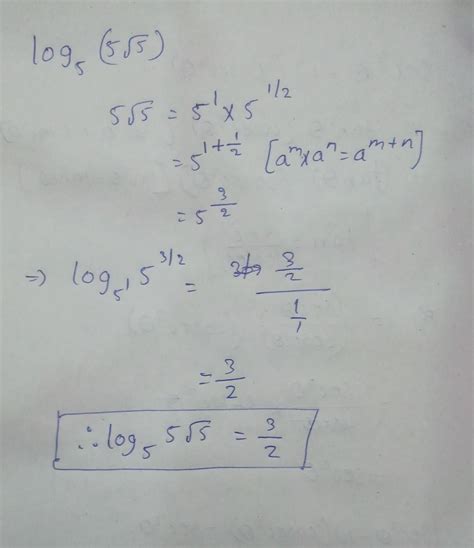 log₅(5√5)
5√5 = 5¹ x 5^{1/2}
= 5^{1+1/2} [aᵐxaⁿ=a^{m+n}]
= 5^{3/2}
⇒ log₅¹ 5^{3/2} = (3/2)/(1/1)
= 3/2
∴ log₅ 5√5 = 3/2